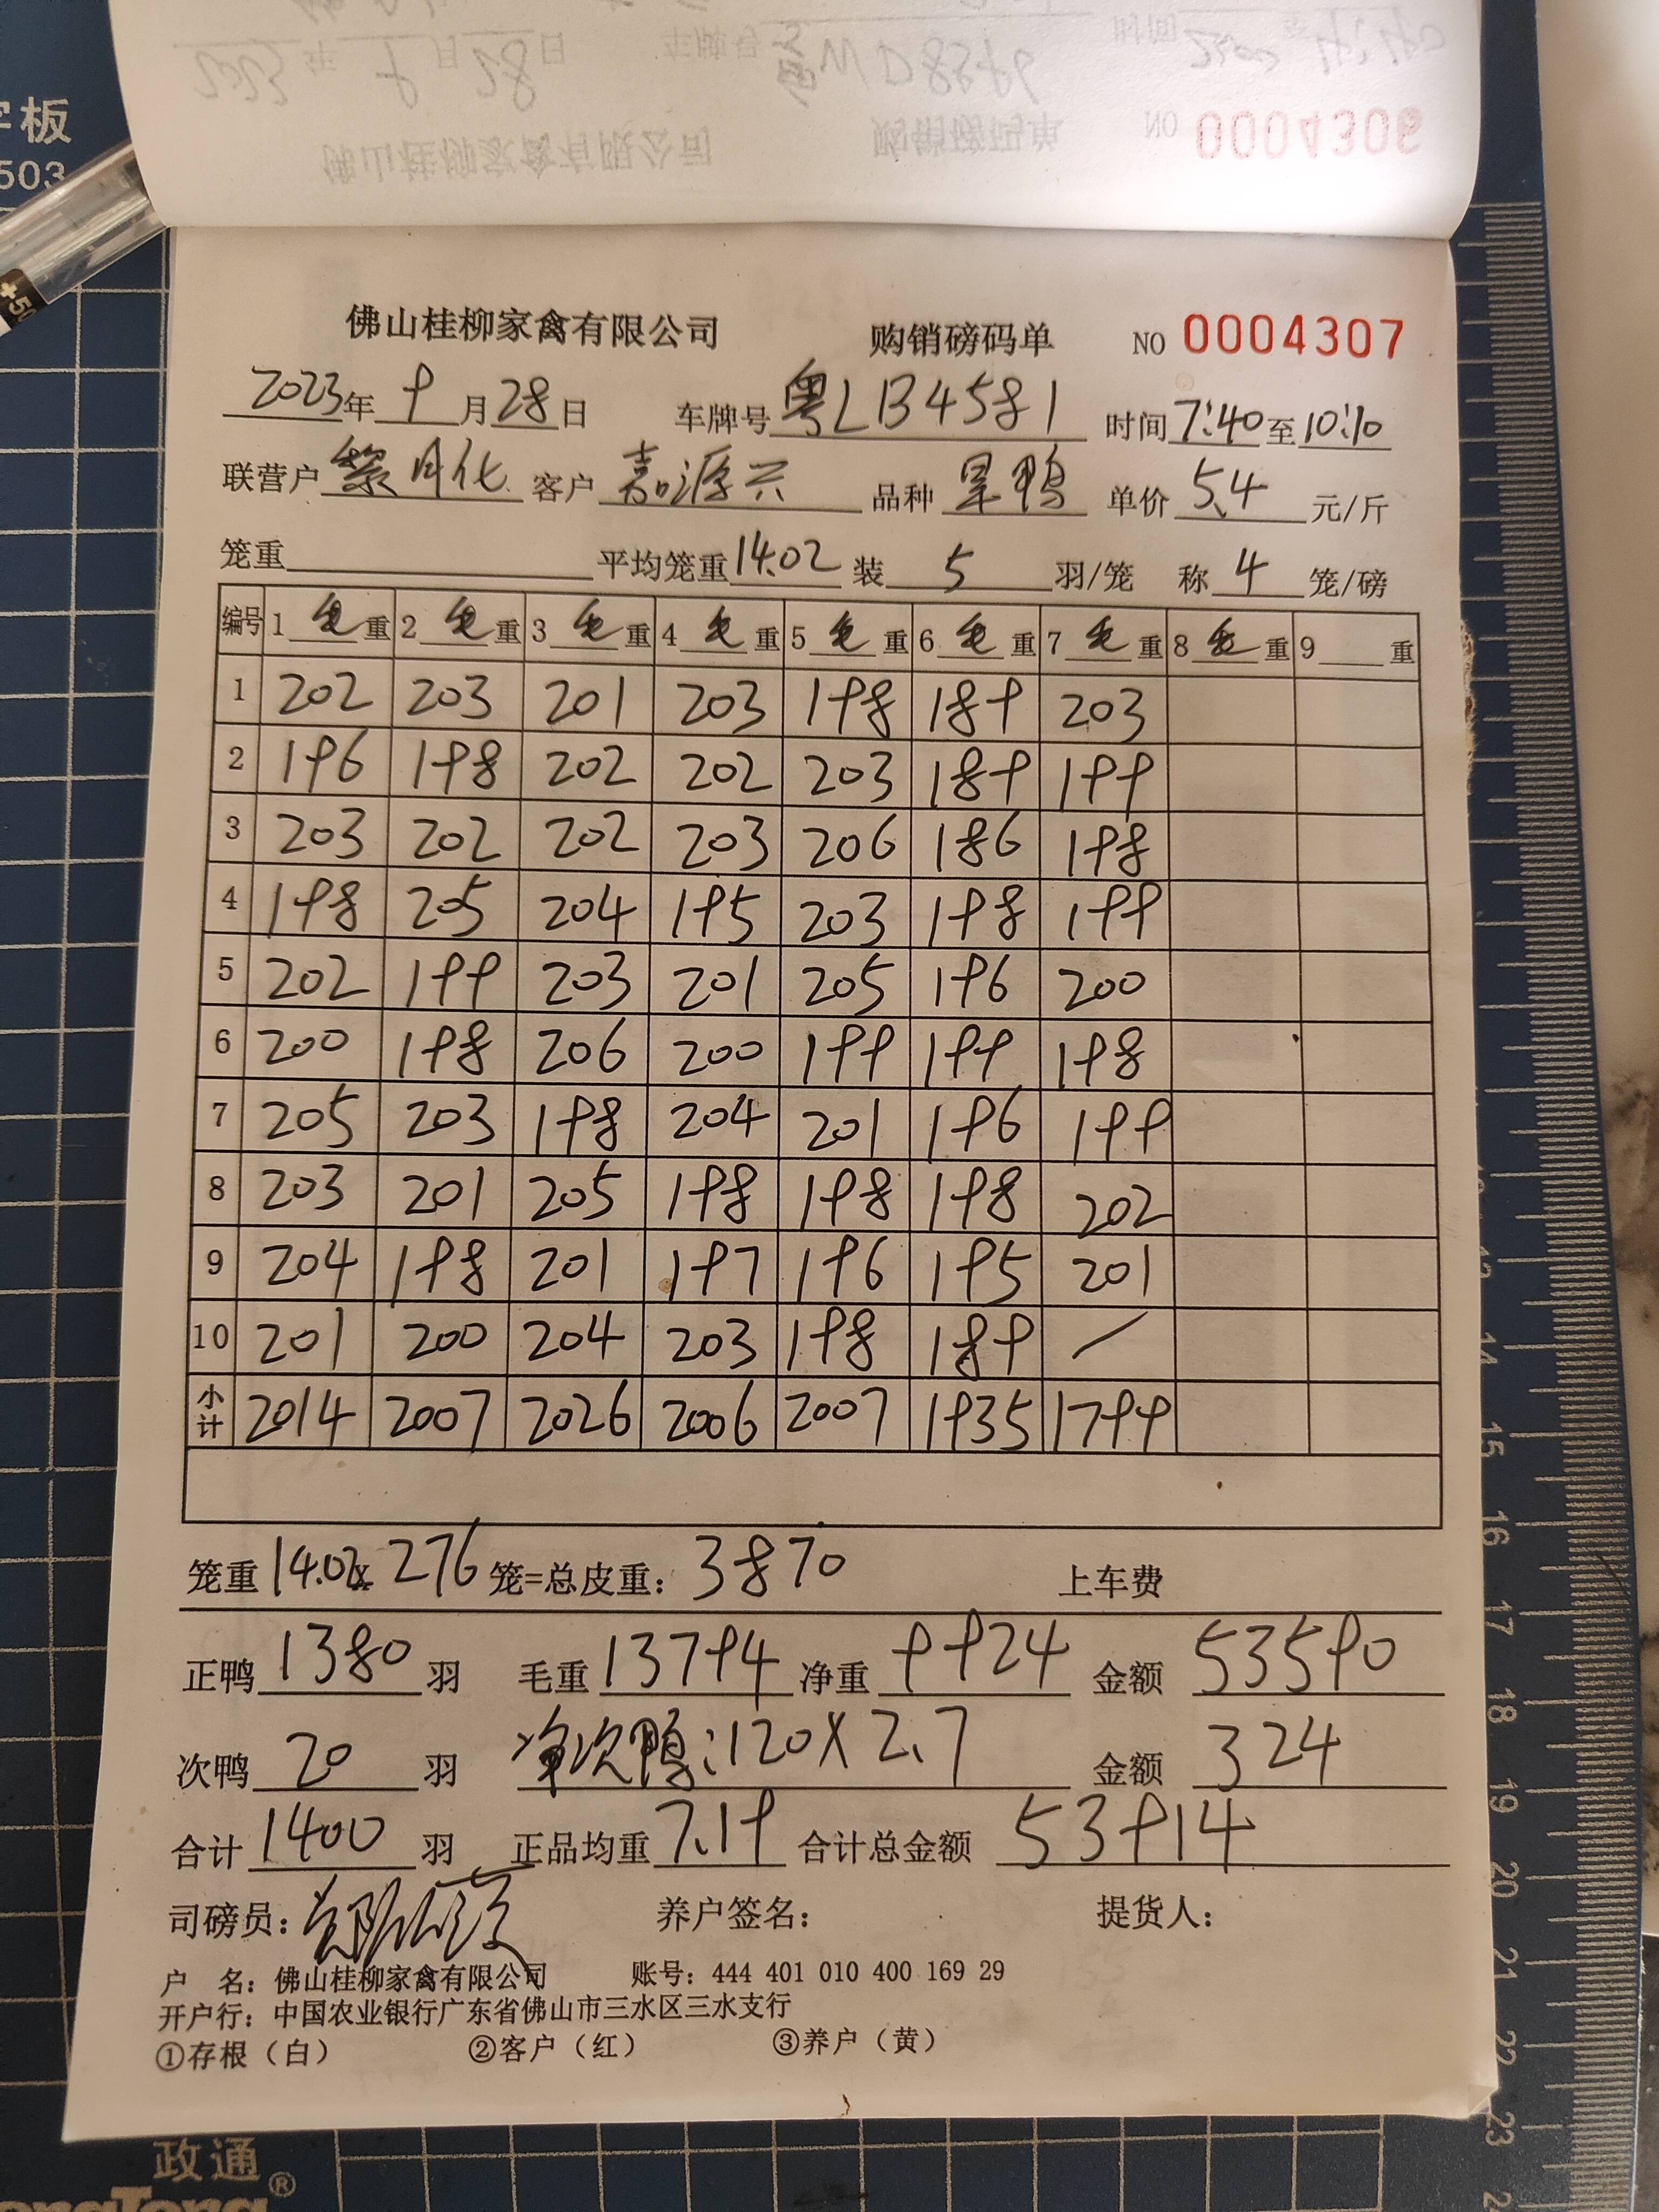 字板
503
+50
2023 年 9 月 28 日 车牌号 粤WD8589 时间
佛山桂柳家禽有限公司 购销磅码单 NO 0004306
佛山桂柳家禽有限公司 购销磅码单 NO 0004307
2023年 9 月 28 日 车牌号 粤LB4581 时间 7:40 至 10:10
联营户 黎月化 客户 嘉源兴 品种 旱鸭 单价 5.4 元/斤
笼重 平均笼重 14.02 装 5 羽/笼 称 4 笼/磅
编号 1 毛 重 2 毛 重 3 毛 重 4 毛 重 5 毛 重 6 毛 重 7 毛 重 8 毛 重 9 重
1 202 203 201 203 198 189 203
2 196 198 202 202 203 189 199
3 203 202 202 203 206 186 198
4 198 205 204 195 203 198 199
5 202 199 203 201 205 196 200
6 200 198 206 200 199 199 198
7 205 203 198 204 201 196 199
8 203 201 205 198 198 198 202
9 204 198 201 197 196 195 201
10 201 200 204 203 198 189 /
小计 2014 2007 2026 2006 2007 1935 1799
笼重 14.02 x 276 笼=总皮重: 3870 上车费
正鸭 1380 羽 毛重 13794 净重 9924 金额 53590
次鸭 20 羽 净次鸭:120X2.7 金额 324
合计 1400 羽 正品均重 7.19 合计总金额 53914
司磅员: 养户签名: 提货人:
户 名: 佛山桂柳家禽有限公司 账号: 444 401 010 400 169 29
开户行: 中国农业银行广东省佛山市三水区三水支行
①存根（白） ②客户（红） ③养户（黄）
政通®
14
15
16
17
18
19
20
21
22
23